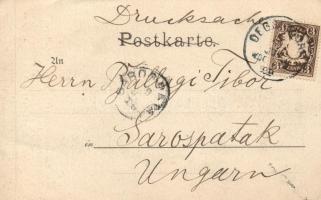 Drucksache
Postkarte.
An
Herrn Ballagi Tibor
in
Sarospatak
Ungarn